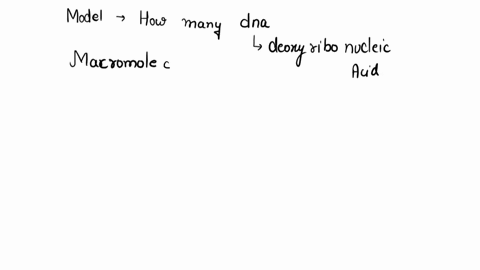 Model → How many dna
↳ deoxy ribo nucleic
Acid
Macromole c